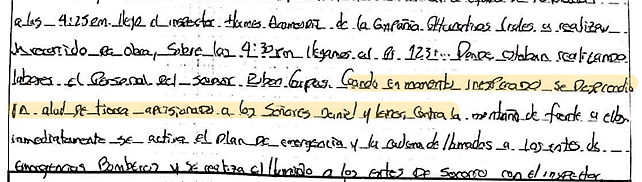 a las 4:25 pm llega el inspector de la Compañia Alternativas viales a realizar
recorrido de obra, Sobre las 4:30 pm llegamos al Pr 123+... Donde estaban realizando
labores el Personal del señor Ruben Cuando en momento inesperado se Desprendio
un alud de tierra aprisionando a los Señores Daniel y contra la montaña de frente a ellos
inmediatamente se activa el Plan De emergencia y la cadena de llamados a los entes de
emergencias Bomberos y se realiza el llamado a los entes De Socorro con el inspector